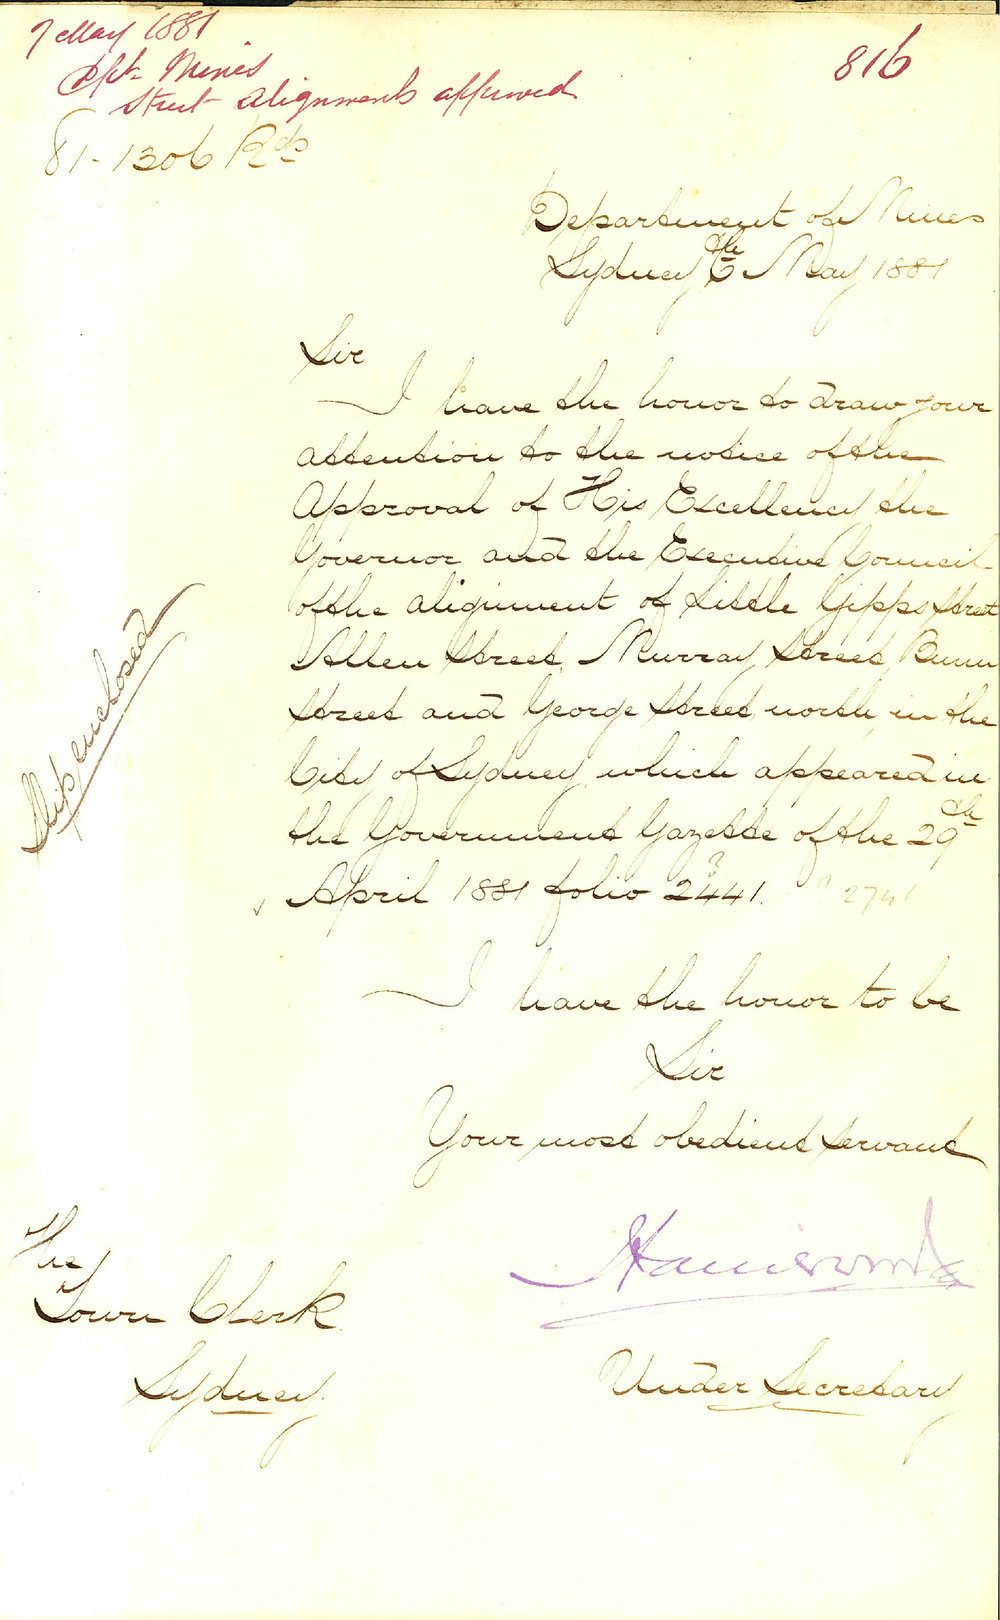 7 May 1881
Dpt Mines
Street Alignments approved
816
81-1306 Rds
Department of Mines
Sydney 6th May 1881
Sir
I have the honor to draw your
attention to the notice of the
Approval of His Excellency the
Governor and the Executive Council
of the alignment of Little Gipps Street
Allen Street, Murray Street, Bunn
Street and George Street north, in the
City of Sydney, which appeared in
the Government Gazette of the 29th
April 1881 folio 2441. 2741
I have the honor to be
Sir
Your most obedient servant
Under Secretary
The
Town Clerk
Sydney.
Slip enclosed